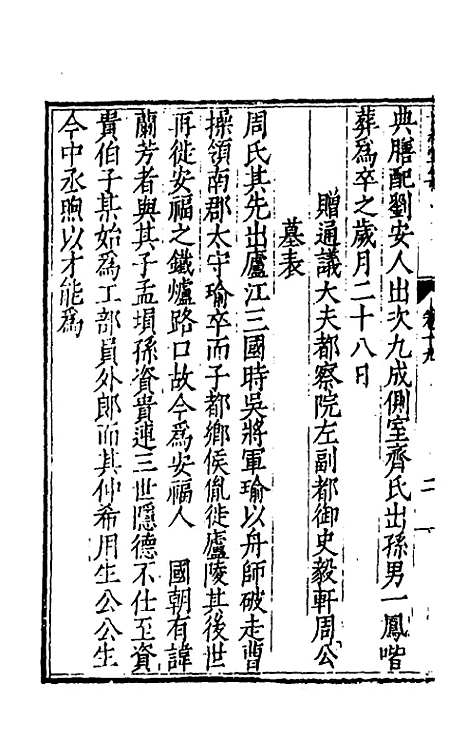 卷十九
二
典膳配劉安人出次九成側室齊氏出孫男一鳳喈
葬爲卒之歲月二十八日
贈通議大夫都察院左副都御史毅軒周公
墓表
周氏其先出廬江三國時吳將軍瑜以舟師破走曹
操領南郡太守瑜卒而子都鄉侯胤徙廬陵其後世
再徙安福之鐵爐路口故今爲安福人　國朝有諱
蘭芳者與其子孟塤孫資貴連三世隱德不仕至資
貴伯子某始爲工部員外郎而其仲希用生公公生
今中丞煦以才能爲